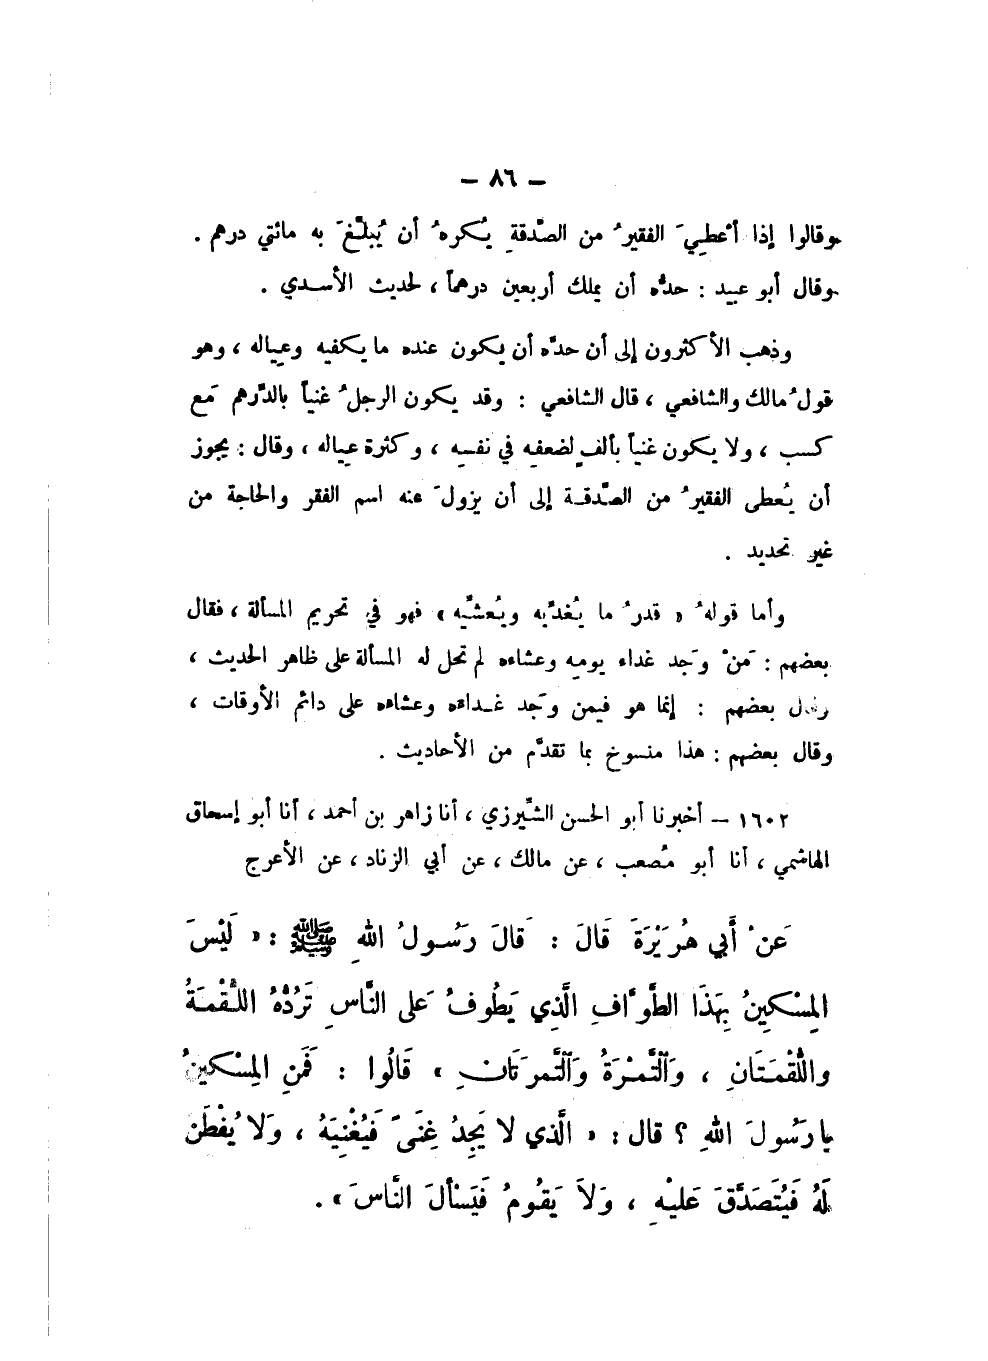 - ٨٦ -
وقالوا إذا أُعطِيَ الفقيرُ من الصَّدقةِ يُكرهُ أن يُبلَّغَ به مائتي درهم .
وقال أبو عبيد : حدُّه أن يملك أربعين درهماً ، لحديث الأسدي .
وذهب الأكثرون إلى أن حدَّه أن يكون عنده ما يكفيه وعياله ، وهو
قولُ مالك والشافعي ، قال الشافعي : وقد يكون الرجلُ غنياً بالدِّرهم مَع
كسب ، ولا يكون غنياً بألفٍ لضعفِه في نفسِه ، وكثرة عياله ، وقال : يجوز
أن يُعطى الفقيرُ من الصَّدقة إلى أن يزولَ عنه اسم الفقر والحاجة من
غير تحديد .
وأما قولهُ « قدرُ ما يُغدِّيه ويُعشِّيه » فهو في تحريم المسألة ، فقال
بعضهم : مَنْ وجَد غداء يومِه وعشاءه لم تحل له المسألة على ظاهر الحديث ،
وقال بعضهم : إنما هو فيمن وجَد غداءه وعشاءه على دائم الأوقات ،
وقال بعضهم : هذا منسوخ بما تقدَّم من الأحاديث .
١٦٠٢ – أخبرنا أبو الحسن الشِّيرزي ، أنا زاهر بن أحمد ، أنا أبو إسحاق
الهاشمي ، أنا أبو مُصعب ، عن مالك ، عن أبي الزناد ، عن الأعرج
عَنْ أَبي هُرَيْرَةَ قَالَ : قَالَ رَسُولُ اللهِ ﷺ : « لَيْسَ
المِسْكِينُ بِهَذَا الطَّوَّافِ الَّذِي يَطُوفُ عَلى النَّاسِ تَرُدُّهُ اللُّقْمَةُ
واللُّقْمَتَانِ ، وَالتَّمْرَةُ وَالتَّمرَتَانِ » قَالُوا : فَمَنِ المِسْكِينُ
يا رَسُولَ اللهِ ؟ قال : « الَّذي لا يَجِدُ غِنَىً فَيُغْنِيَهُ ، وَلا يُفْطَن
لَهُ فَيُتَصَدَّقَ عَلَيْهِ ، وَلاَ يَقُومُ فَيَسْأَلَ النَّاسَ » .